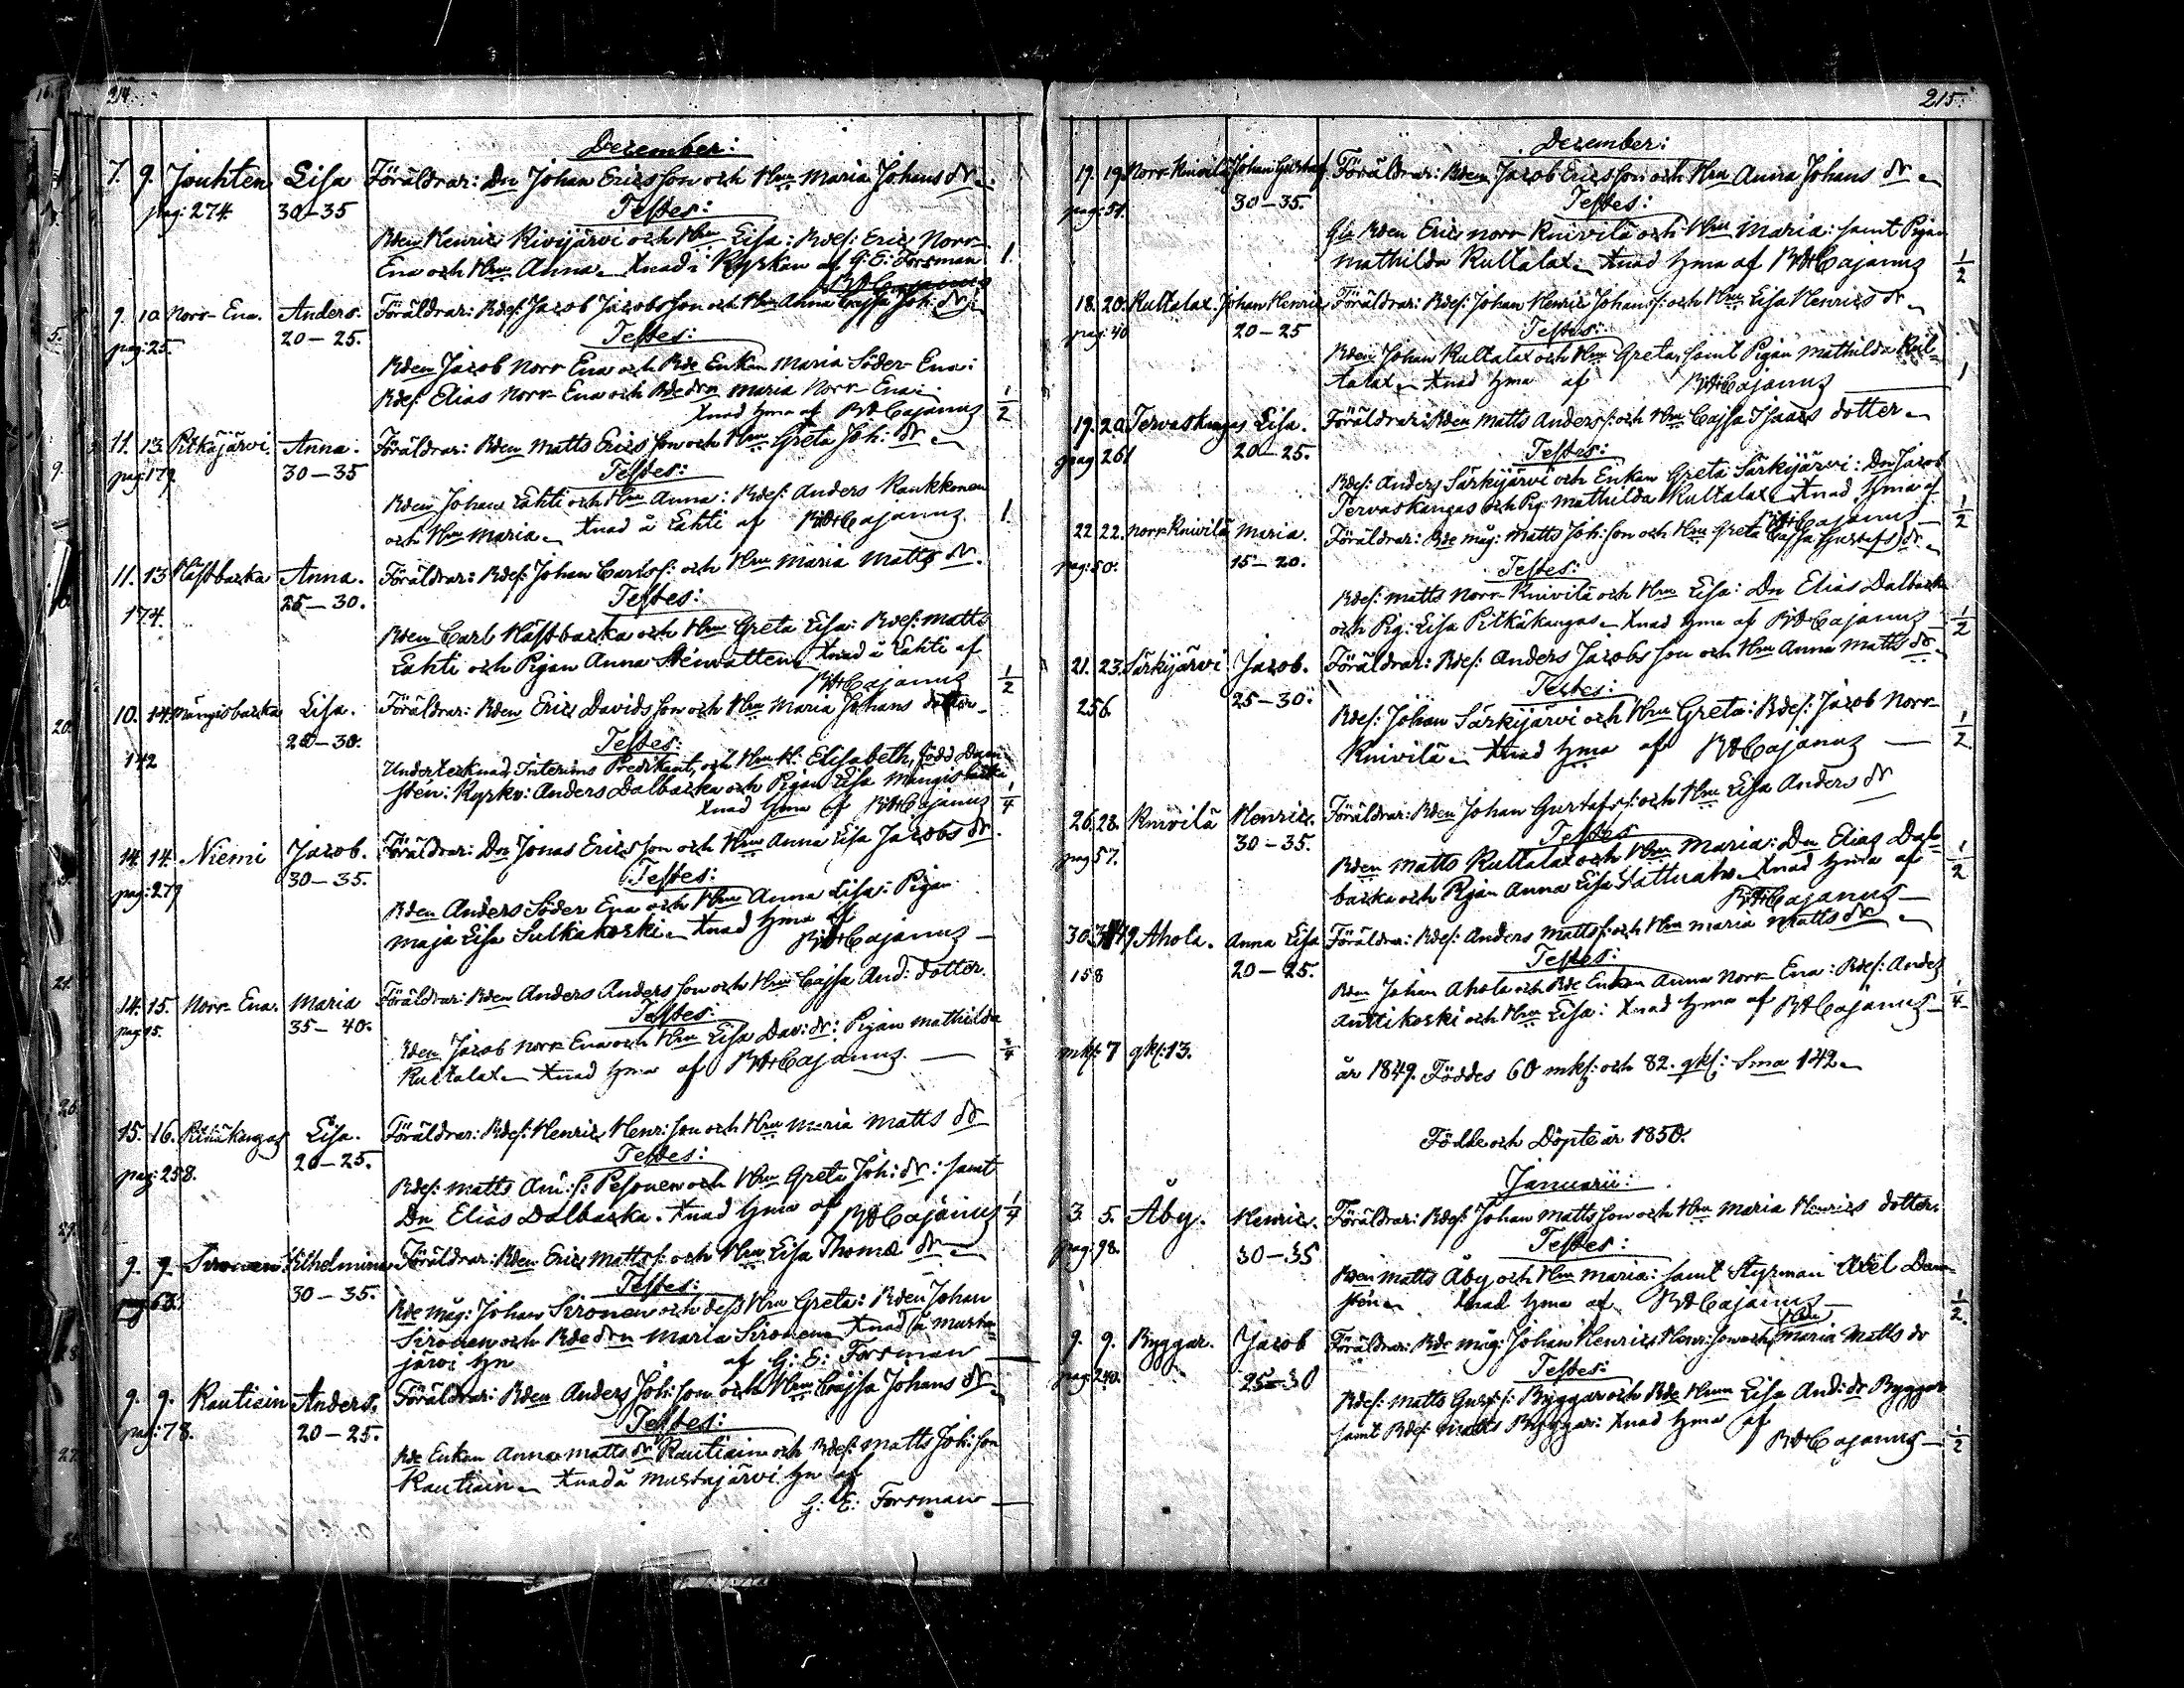 214.
December:
7. 9. Jouhten Lisa Föräldrar: Dn Johan Ericsson och Hru Maria Johans dr.
pag: 274. 30-35 Testes:
Bden Henric Kivijärvi och Hru Lisa: Bdes: Eric Norr-
Ena och Hru Anna. Xnad i Kyrkan af G: E: Forsman. 1.
9. 10 Norr-Ena. Anders. Föräldrar: Bdes: Jacob Jacobsson och Hru Anna Cajsa Joh: dr.
pag: 25. 20-25. Testes:
Bden Jacob Norr Ena och Bde Enkan Maria Söder-Ena:
Bdes: Elias Norr-Ena och Bde drn Maria Norr-Ena:
Xnad hma af Cajanus 1/2
11. 13. Pitkäjärvi. Anna. Föräldrar: Bden Matts Ericsson och Hru Greta Joh: dr.
pag: 179. 30-35 Testes:
Bden Johan Lahti och Hru Anna: Bdes: Anders Kaukkonen
och Hru Maria. Xnad å Lahti af Cajanus. 1.
11. 13 Hästbacka Anna. Föräldrar: Bdes: Johan Carls s: och Hru Maria Matts dr.
174. 25-30. Testes:
Bden Carl Hästbacka och Hru Greta Lisa: Bdes: Matts
Lahti och Pigan Anna Xnad å Lahti af
Cajanus 1/2
10. 14. Mångisbacka Lisa. Föräldrar: Bden Eric Davidsson och Hru Maria Johans dotter.
142 Testes:
Undertecknad Interims Predikant, och Hru H: Elisabeth, född Dam-
stén: Kyrkv: Anders Dalbacka och Pigan Lisa Mångisbacka
Xnad hma af Cajanus 1/4
14. 14. Niemi Jacob. Föräldrar: Dn Jonas Ericsson och Hru Anna Lisa Jacobs dr.
pag: 279 30-35. Testes:
Bden Anders Söder Ena och Hru Anna Lisa: Pigan
Maja Lisa Sulkakoski. Xnad hma af
Cajanus
14. 15. Norr-Ena. Maria Föräldrar: Bden Anders Andersson och Hru Cajsa And: dotter.
pag: 15. 35-40. Testes:
Bden Jacob Norr Ena och Hru Lisa Dav: dr: Pigan Mathilda
Kultalax. Xnad hma af Cajanus. 3/4
15. 16. Pitkäkangas Lisa. Föräldrar: Bdes: Henric Henr: son och Hru Maria Matts dr
pag: 258. 20-25. Testes:
Bdes: Matts And: s: Pesonen och Hru Greta Joh: dr: samt
Dn Elias Dalbacka. Xnad hma af Cajanus 1/4
9. 9. Sironen Wilhelmina Föräldrar: Bden Eric Matts s: och Hru Lisa Thomæ dr.
pag: 63. 30-35. Testes:
Bde måg: Johan Sironen och dess Hru Greta: Bden Johan
Sironen och Bde drn Maria Sironen. Xnad å Musta-
järvi hn af G: E: Forsman
9. 9. Rautiain Anders. Föräldrar: Bden Anders Joh: son och Hru Cajsa Johans dr.
pag: 78. 20-25. Testes:
Bde Enkan Anna Matts dr Rautiain och Bdes: Matts Joh: son
Rautiain. Xnad å Mustajärvi hn af
G: E: Forsman
215.
December:
17. 19. Norr Knivilä Johan Gustaf. Föräldrar: Bden Jacob Ericsson och Hru Anna Johans dr.
pag: 51. 30-35. Testes:
Gla Bden Eric Norr Knivilä och Hru Maria: samt Pigan
Mathilda Kultalax. Xnad hma af Cajanus 1/2
18. 20. Kultalax. Johan Henric Föräldrar: Bdes: Johan Henric Johans s: och Hru Lisa Henrics dr.
pag: 40 20-25 Testes:
Bden Johan Kultalax och Hru Greta, samt Pigan Mathilda Kul-
talax. Xnad hma af Cajanus 1
19. 20. Tervaskangas Lisa. Föräldrar: Bden Matts Anders s: och Hru Cajsa Isaacs dotter.
pag 261 20-25. Testes:
Bdes: Anders Särkijärvi och Enkan Greta Särkijärvi: Dn Jacob
Tervaskangas och Pig: Mathilda Kultalax. Xnad hma af
Cajanus 1/2
22. 22. Norr Knivilä Maria. Föräldrar: Bde måg: Matts Joh: son och Hru Greta Cajsa Gustafs dr.
pag: 50. 15-20. Testes:
Bdes: Matts Norr-Knivilä och Hru Lisa: Dn Elias Dalbacka
och Pig: Lisa Pitkäkangas. Xnad hma af Cajanus 1/2
21. 23. Särkijärvi Jacob. Föräldrar: Bdes: Anders Jacobsson och Hru Anna Matts dr.
256. 25-30. Testes:
Bdes: Johan Särkijärvi och Hru Greta: Bdes: Jacob Norr
Knivilä. Xnad hma af Cajanus 1/2
26. 28. Knivilä Henric. Föräldrar: Bden Johan Gustafs s: och Hru Lisa Anders dr
pag 57. 30-35. Testes
Bden Matts Kultalax och Hru Maria: Dn Elias Dal-
backa och Pigan Anna Lisa Xnad hma af 1/2
Cajanus
30. Ahola. Anna Lisa Föräldrar: Bdes: Anders Matts s: och Hru Maria Matts dr.
158 20-25. Testes:
Bden Johan Ahola och Bde Enkan Anna Norr-Ena: Bdes: Anders
Anttikoski och Hru Lisa: Xnad hma af Cajanus 1/4
mks: 7 qks: 13.
år 1849. Föddes 60 mks: och 82. qks: Sma 142.
Födde och Döpte år 1850.
Januarii:
3. 5. Åby. Henric. Föräldrar: Bdes: Johan Mattsson och Hru Maria Henrics dotter.
pag: 98. 30-35 Testes:
Bden Matts Åby och Hru Maria: samt Styrman Axel Dam-
stén. Xnad hma af Cajanus 1/2.
9. 9. Byggar. Jacob Föräldrar: Bde måg: Johan Henric Henr: son och Hru Maria Matts dr
pag: 240. 25-30 Testes:
Bdes: Matts Gust: s: Byggar och Bde Hrun Lisa And: dr Byggar
samt Bdes: Matts Byggar: Xnad hma af
Cajanus 1/2